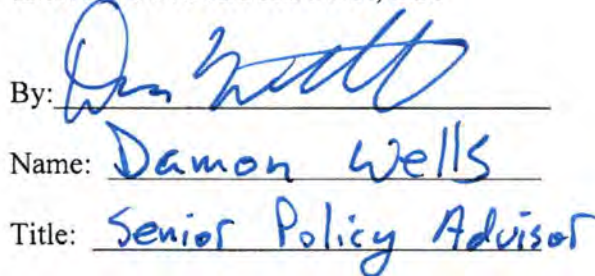 By:
Name: Damon Wells
Title: Senior Policy Advisor